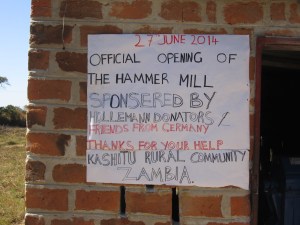 27TH JUNE 2014
OFFICIAL OPENING OF
THE HAMMER MILL
SPONSERED BY
HILLEMANN DONATORS /
FRIENDS FROM GERMANY
THANKS FOR YOUR HELP
KASHITU RURAL COMMUNITY
ZAMBIA.